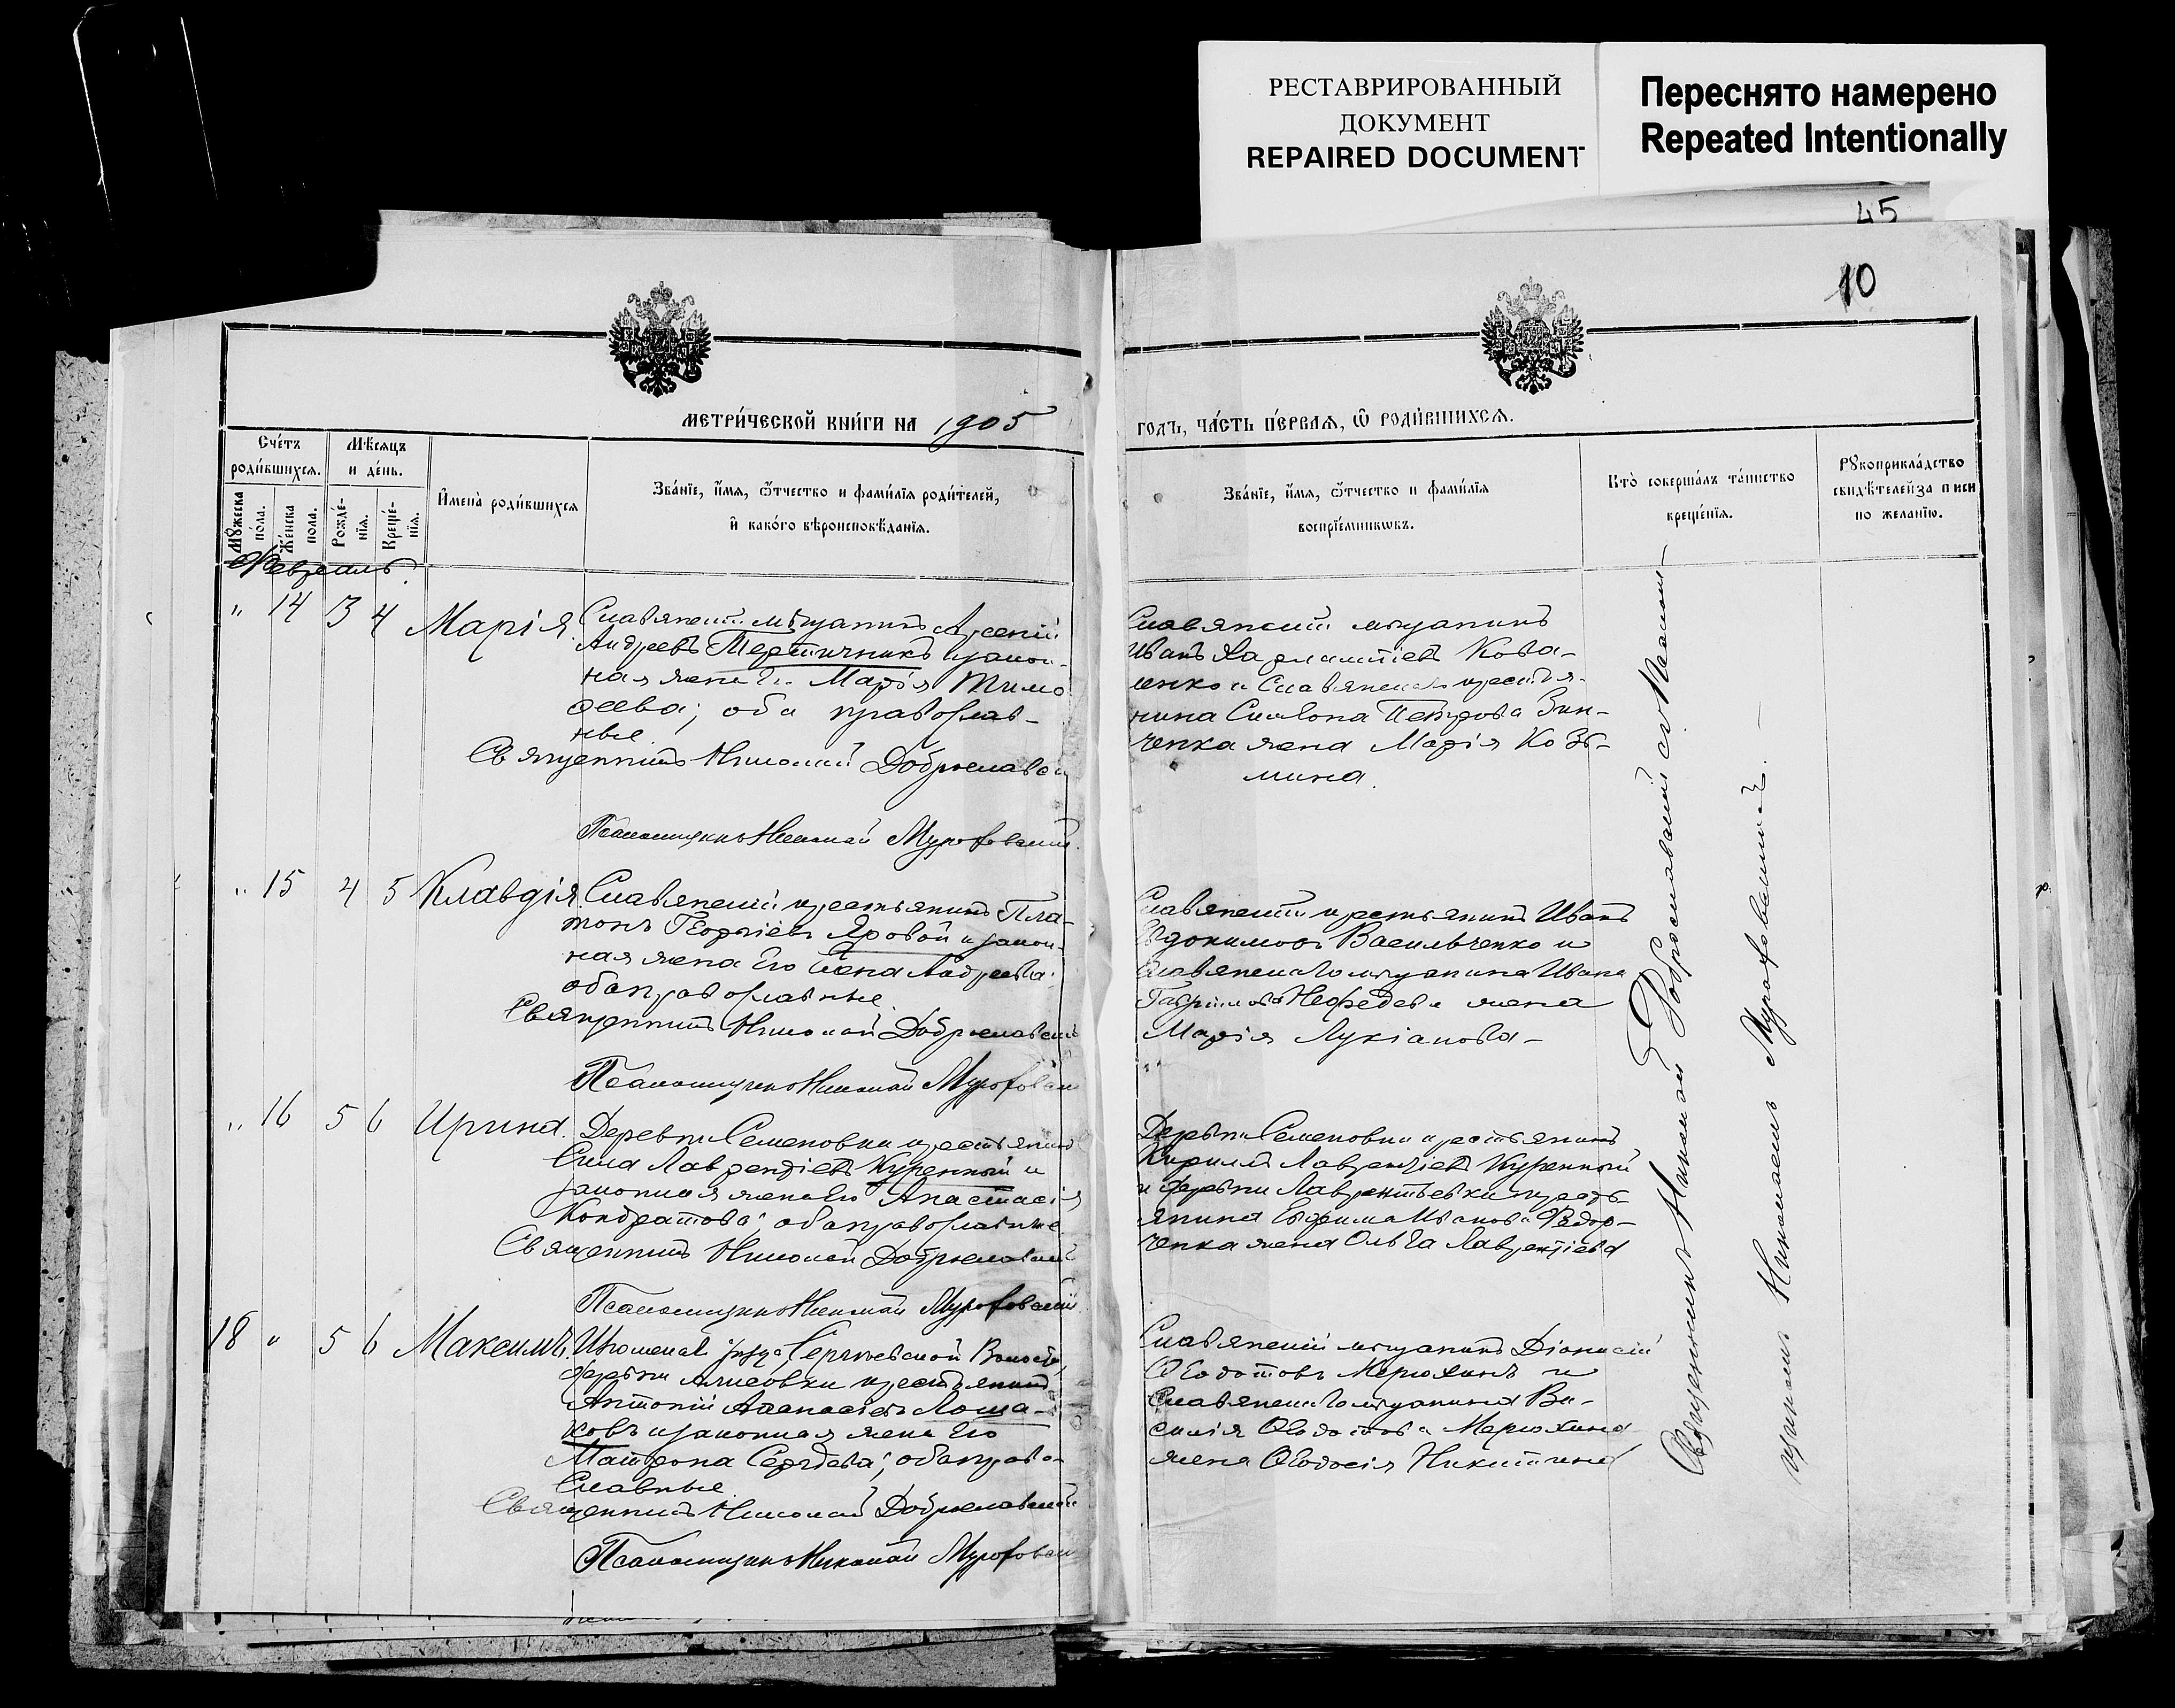 РЕСТАВРИРОВАННЫЙ
ДОКУМЕНТ
REPAIRED DOCUMENT
Переснято намерено
Repeated Intentionally
45
10
МЕТРИ́ЧЕСКОЙ КНИ́ГИ НА 1905
ГОДЪ, ЧА́СТЬ ПЕ́РВАѦ, Ѽ РОДИ́ВШИХСѦ.
Сче́тъ
роди́вшихсѧ.
Мѣ́сяцъ
и де́нь.
Мꙋ́жеска
по́ла.
Же́нска
по́ла.
Рожде́-
нїѧ.
Креще́-
нїѧ.
И́мена̀ роди́вшихсѧ
Зва́нїе, и́мѧ, ѻ҆́тчество и фами́лїѧ роди́телей,
и҆ како́го вѣроисповѣ́данїѧ.
Зва́нїе, и́мѧ, ѻ҆́тчество и фами́лїѧ
воспрїе́мникѡвъ.
Кто̀ соверша́лъ та́инство
креще́нїѧ.
Рꙋкоприкла́дство
свидѣ́телей за писи
по жела́нїю.
Февраль.
" 14 3 4 Марія.
Славянскій мѣщанинъ Арсеній
Андреевъ Пертичникъ и закон-
ная жена Его Марія Тимо
ѳеева; оба православ-
ные.
Священникъ Николай Доброславскій
Псаломщикъ Николай
Славянскій мѣщанинъ
Иванъ Харлампіевъ Кова-
ленко и Славянскаго крестья-
нина Петрова Зин-
ченка жена Марія Козь-
мина.
" 15 4 5 Клавдія
Славянскій крестьянинъ Пла-
тонъ Георгіевъ Яровой и закон-
ная жена Его Андреева;
оба православные.
Священникъ Николай Доброславскій
Псаломщикъ Николай
Славянскій крестьянинъ Иванъ
Евдокимовъ Васильченко и
Славянскаго мѣщанина Ивана
Гаврилова Нефедева жена
Марія Лукіанова-
" 16 5 6 Ирина.
Деревни Семеновки крестьянинъ
Сила Лаврентіевъ Куренный и
законная жена Его Анастасія
Кондратова; оба православные
Священникъ Николай Доброславскій
Псаломщикъ Николай
Деревни Семеновки крестьянинъ
Кириллъ Лаврентіевъ Куренный
и деревни Лаврентьевки кресть-
янина Ефима Иванова Федор-
ченка жена Ольга Лаврентіева
18 " 5 6 Максимъ.
Изюмскаго уѣзда Сергіевской Волости
деревни крестьянинъ
Антоній Аѳанасіевъ Лоша-
ковъ и законная жена Его
Матрона Сергѣева; оба право-
славные.
Священникъ Николай Доброславскій
Псаломщикъ Николай
Славянскій мѣщанинъ Діонисій
Ѳеодотовъ Мерюхинъ и
Славянскаго мѣщанина Ва-
силія Ѳеодотова Мерюхина
жена Ѳеодосія Никитина
Священникъ Николай Доброславскій съ Псалом-
щикомъ Николаемъ